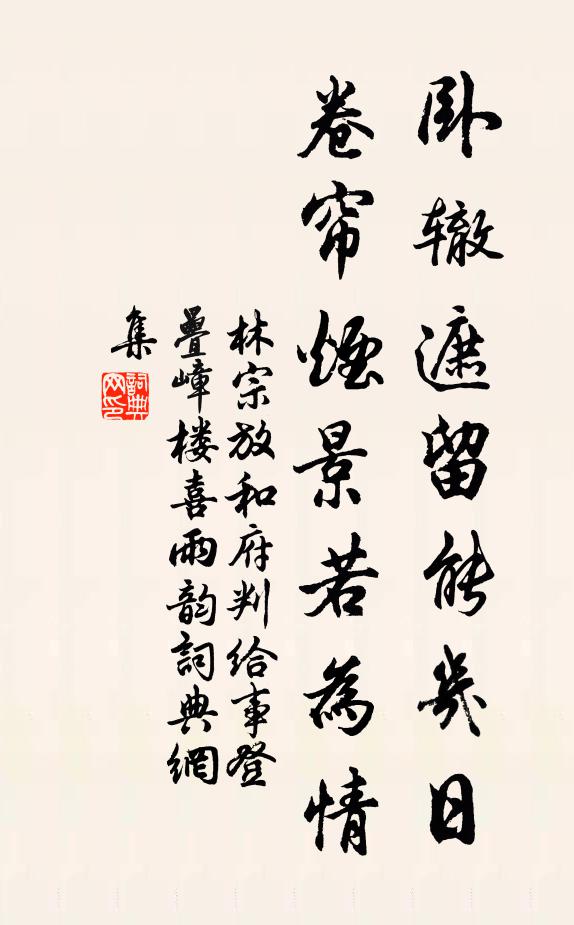 卧辙遮留能几日
卷帘煙景若為情
林宗放和府判给事登
疊嶂楼喜雨韵詞典網
集
詞典
网印